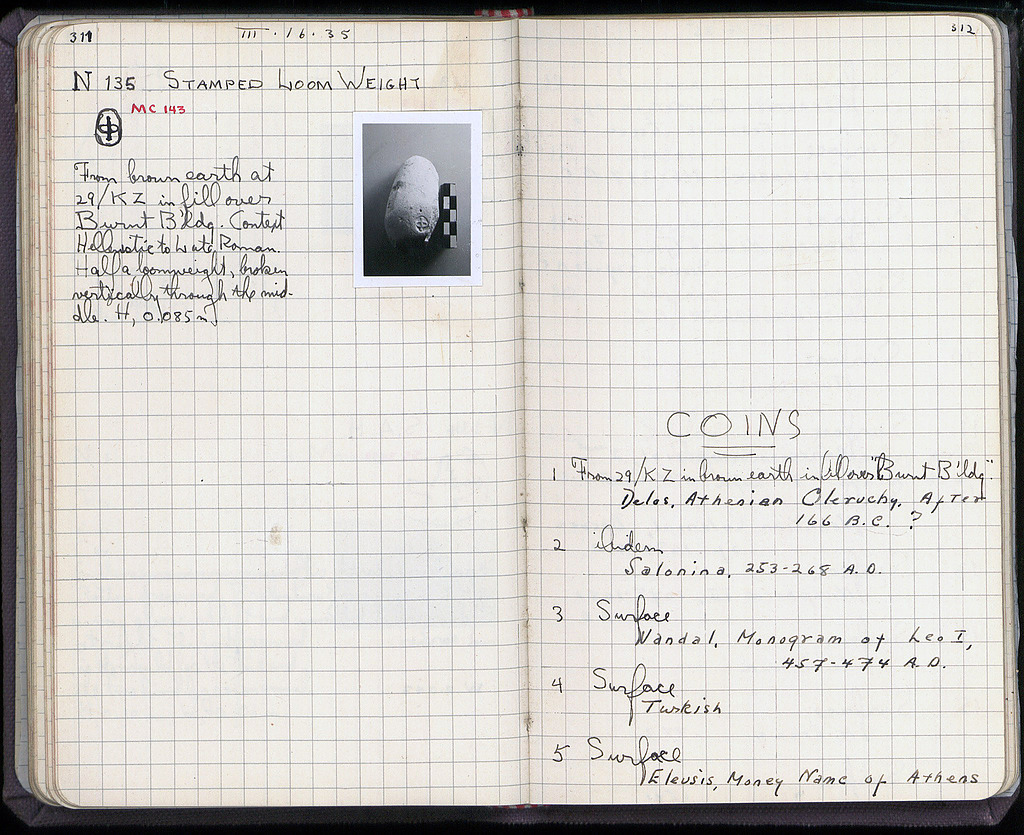 311
III · 16 · 35
N 135 STAMPED LOOM WEIGHT
MC 143
From brown earth at
29/KZ in fill over
Burnt B'ldg. Context
Hellenistic to Late Roman.
Half a loomweight, broken
vertically through the mid-
dle. H, 0.085 m
312
COINS
1 From 29/KZ in brown earth in fill over "Burnt B'ldg"
Delos, Athenian Cleruchy. After
166 B.C. ?
2 ibidem
Salonina, 253-268 A.D.
3 Surface
Vandal, Monogram of Leo I,
457-474 A.D.
4 Surface
Turkish
5 Surface
Eleusis, Money Name of Athens